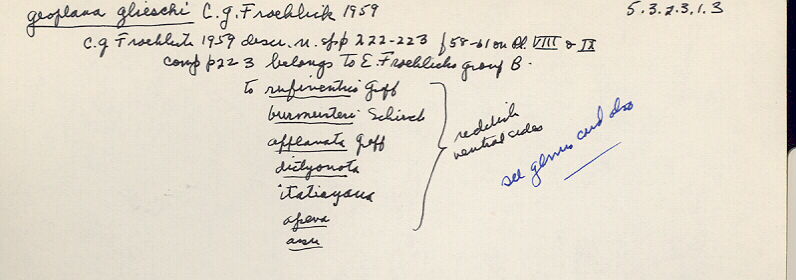 geoplana glieschi C.G. Froehlich 1959 5.3.2.3.1.3
C.G. Froehlich 1959 descr. n. sp p 222-223 f 58-61 on pl. VIII & IX
comp p 223 belongs to E. Froehlichs group B.
to rufiventris Graff
burmeisteri Schirch
applanata Graff
dictyonota
itatiayana
apeva
assu
reddish
ventral sides
see genus card also